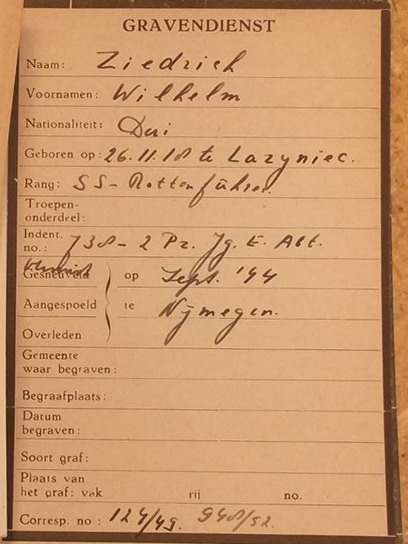 GRAVENDIENST
Naam: Ziedrich
Voornamen: Wilhelm
Nationaliteit: Dui
Geboren op: 26.11.18 te Lazyniec.
Rang: SS-Rottenführer.
Troepen-
onderdeel:
Indent. 738 - 2 Pz. Jg. E. Abt.
no.:
Gesneuveld op Sept. '44
Aangespoeld te Nijmegen.
Overleden
Gemeente
waar begraven:
Begraafplaats:
Datum
begraven:
Soort graf:
Plaats van
het graf: vak rij no.
Corresp. no: 124/49. 948/52.